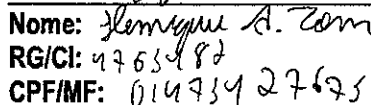 Nome: Henrique A. Zam
RG/CI: 4765482
CPF/MF: 01473427675